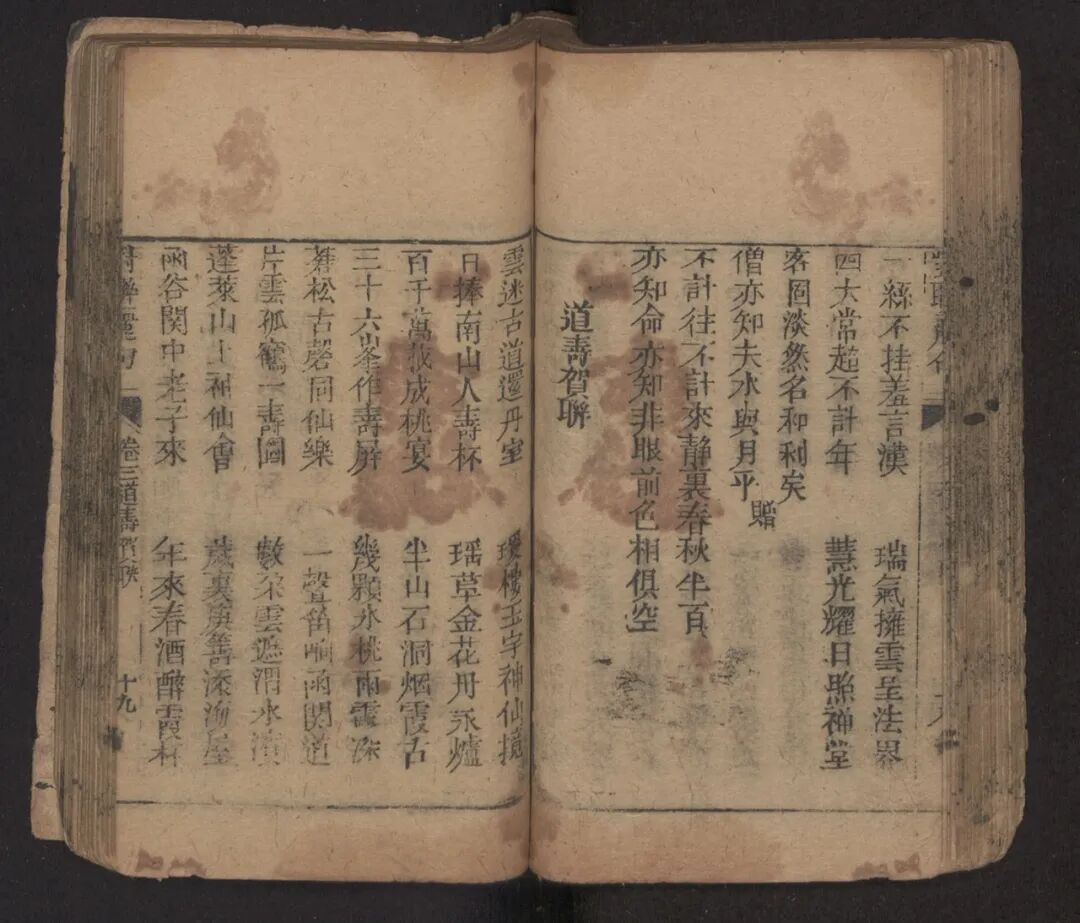 一絲不挂羞言漢
瑞氣擁雲呈法界
四大常超不計年
慧光耀日照神堂
客固淡然名和利矣
僧亦知夫水與月乎
贈
不計往不計來靜裏春秋半百
亦知命亦知非眼前色相俱空
道壽賀聯
雲迷古道還丹室
瓊樓玉宇神仙境
日捧南山人壽杯
瑶草金花丹永爐
百千萬載成桃宴
半山石洞烟霞古
三十六峯作壽屏
幾顆氷桃雨露深
蒼松古磬同仙樂
一聲笛响函関道
片雲孤鶴一壽圖
數朶雲遮渭水濱
蓬萊山上神仙會
歲裏庚籌添海屋
函谷関中老子來
年來春酒醉霞杯
對聯
卷三道壽賀聯
十九